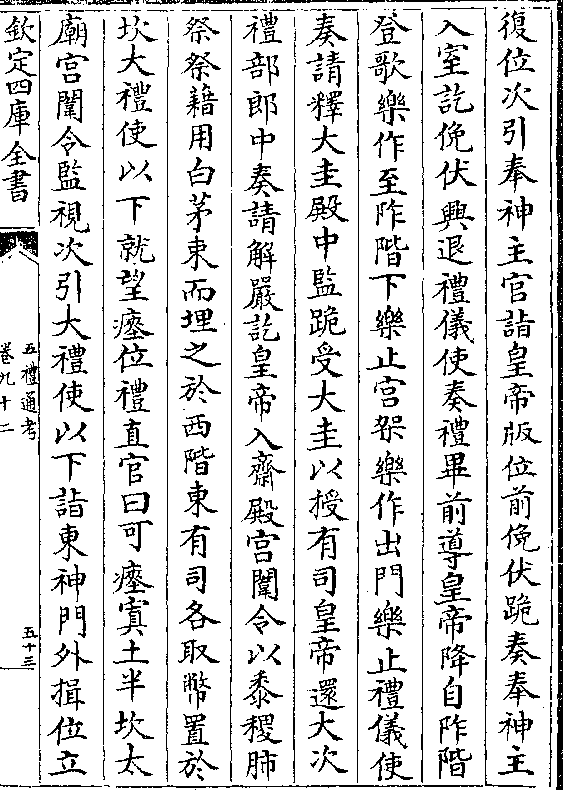 復位次引奉神主官詣皇帝版位前俛伏跪奏奉神主
入室訖俛伏興退禮儀使奏禮畢前導皇帝降自阼階
登歌樂作至阼階下樂止宫架樂作出門樂止禮儀使
奏請釋大圭殿中監跪受大圭以授有司皇帝還大次
禮部郎中奏請解嚴訖皇帝入齋殿宫闈令以黍稷肺
祭祭藉用白茅束而埋之於西階東有司各取幣置於
坎大禮使以下就望瘞位禮直官曰可瘞寘土半坎太
廟宫闈令監視次引大禮使以下詣東神門外揖位立
欽定四庫全書
五禮通考
卷九十二
五十三